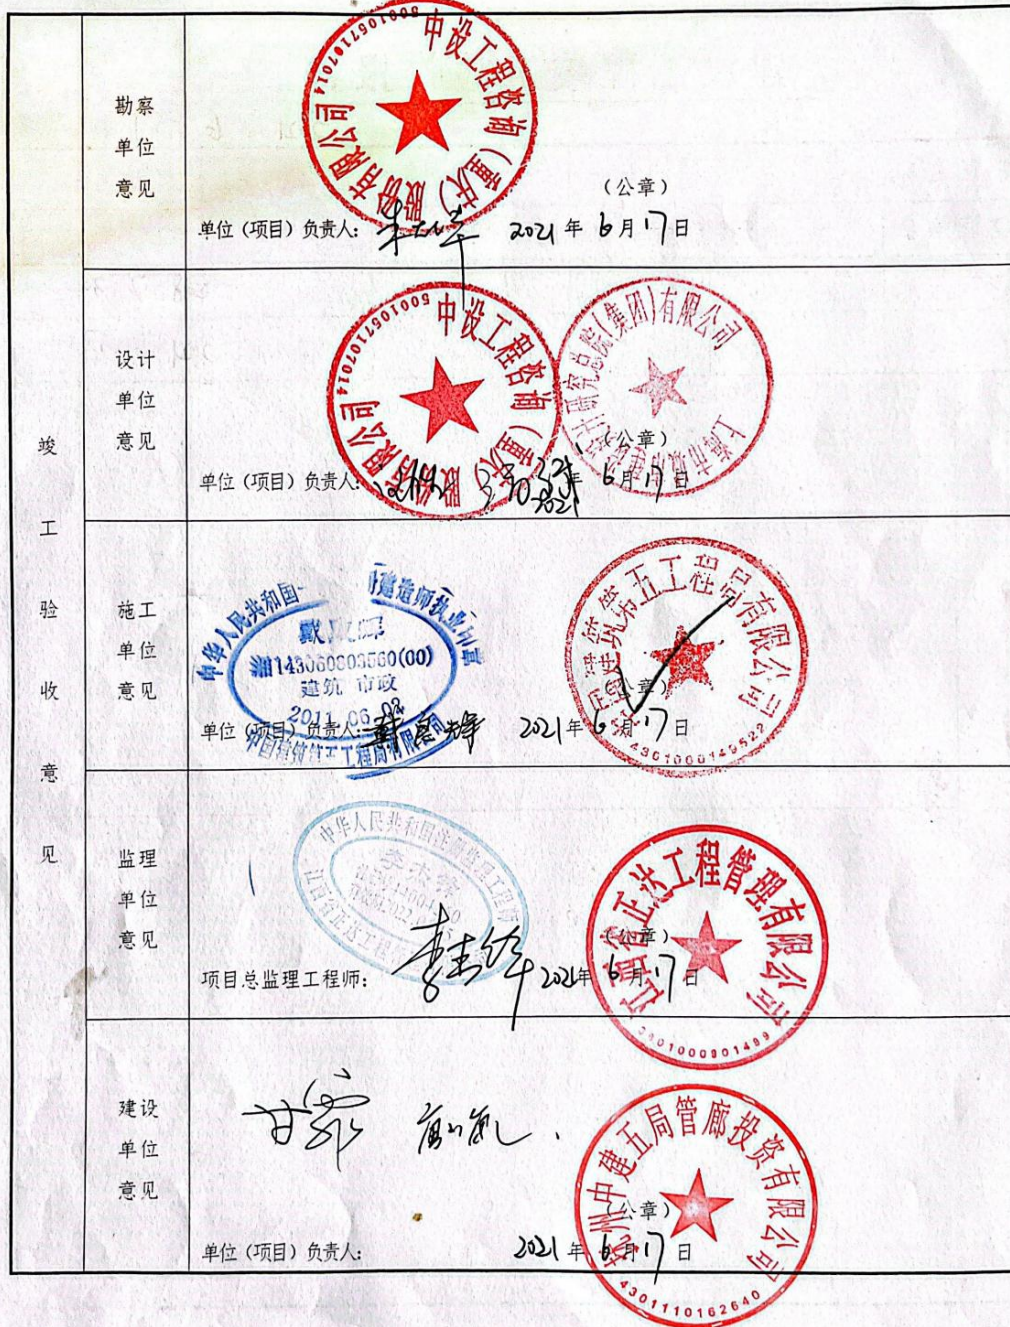 竣工验收意见
勘察
单位
意见
中设工程咨询（重庆）股份有限公司
5001057107014
（公章）
单位（项目）负责人:
2021年6月17日
设计
单位
意见
中设工程咨询（重庆）股份有限公司
5001057107014
研究总院(集团)有限公司
（公章）
单位（项目）负责人:
2021年6月17日
施工
单位
意见
中华人民共和国
建造师执业印章
143060803560(00)
建筑 市政
2011
建筑第五工程局有限公司
（公章）
单位（项目）负责人:
2021年6月17日
监理
单位
意见
中华人民共和国注册监理工程师
江西省正达工程管理有限公司
（公章）
项目总监理工程师:
2021年6月17日
建设
单位
意见
甘霖
州中建五局管廊投资有限公司
4301110162640
（公章）
单位（项目）负责人:
2021年6月17日